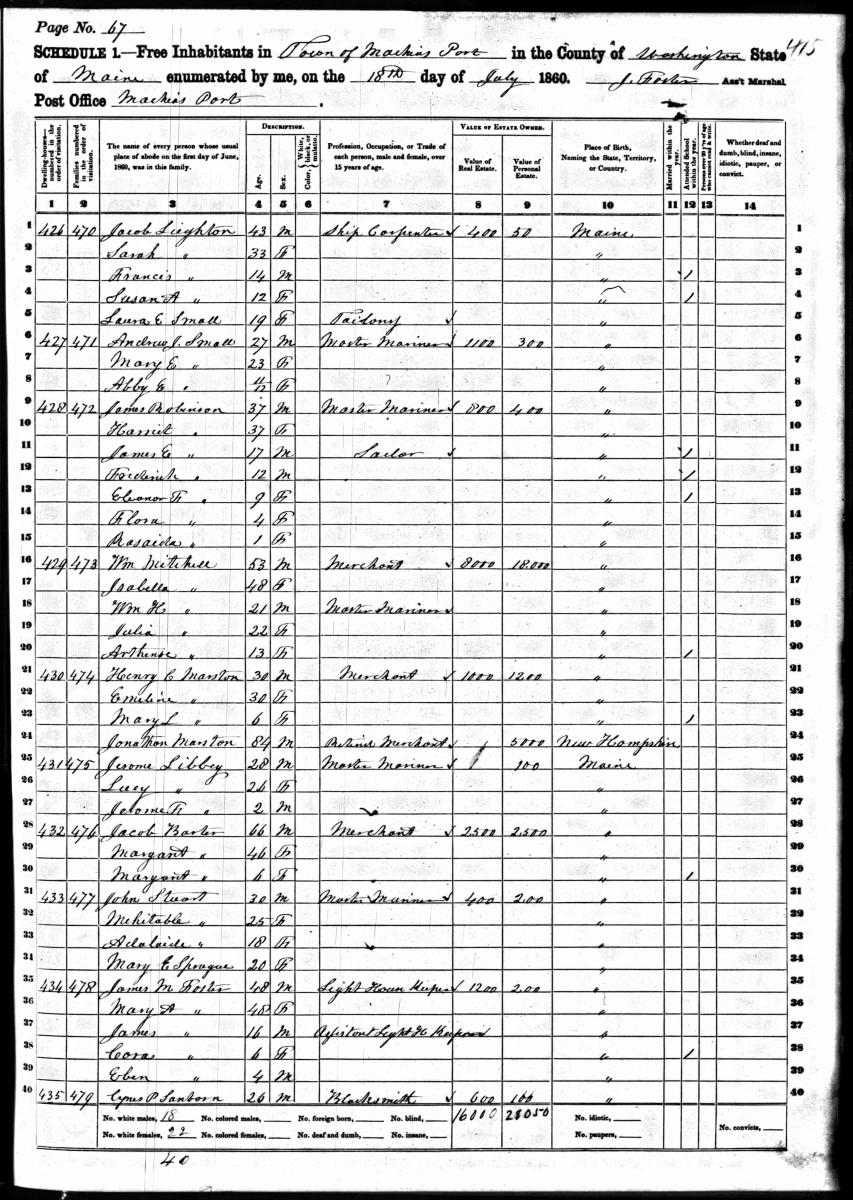 Page No. 67
415
SCHEDULE 1.—Free Inhabitants in Town of Machias Port in the County of Washington State
of Maine enumerated by me, on the 18th day of July 1860. J. Foster Ass't Marshal
Post Office Machias Port.
Dwelling-houses—numbered in the order of visitation.
Families numbered in the order of visitation.
The name of every person whose usual place of abode on the first day of June, 1860, was in this family.
DESCRIPTION.
Age.
Sex.
Color, White, black, or mulatto.
Profession, Occupation, or Trade of each person, male and female, over 15 years of age.
VALUE OF ESTATE OWNED.
Value of Real Estate.
Value of Personal Estate.
Place of Birth, Naming the State, Territory, or Country.
Married within the year.
Attended School within the year.
Persons over 20 y'rs of age who cannot read & write.
Whether deaf and dumb, blind, insane, idiotic, pauper, or convict.
1 2 3 4 5 6 7 8 9 10 11 12 13 14
1 426 470 Jacob Leighton 43 M Ship Carpenter 400 50 Maine 1
2 Sarah " 33 F " 2
3 Francis " 14 M " 1 3
4 Susan A " 12 F " 1 4
5 Laura E Small 19 F " 5
6 427 471 Andrew J. Small 27 M Master Mariner 1100 300 " 6
7 Mary E " 23 F " 7
8 Abby E " F " 8
9 428 472 James Robinson 37 M Master Mariner 800 400 " 9
10 Harriet 37 F " 10
11 James E " 17 M Sailor " 1 11
12 Frederick " 12 M " 1 12
13 Eleonor F " 9 F " 1 13
14 Flora " 4 F " 14
15 Rosaida " 1 F " 15
16 429 473 Wm Mitchell 53 M Merchant 8000 18.000 " 16
17 Isabella " 48 F " 17
18 Wm H " 21 M Master Mariner " 18
19 Julia " 22 F " 19
20 " 13 F " 1 20
21 430 474 Henry C Marston 30 M Merchant 1000 1200 " 21
22 Emeline " 30 F " 22
23 Mary L " 6 F " 1 23
24 Jonathan Marston 84 M Retired Merchant 5000 New Hampshire 24
25 431 475 Jerome Libbey 28 M Master Mariner 100 Maine 25
26 Lucy " 26 F " 26
27 Jerome F " 2 M " 27
28 432 476 Jacob 66 M Merchant 2500 2,500 " 28
29 Margaret " 46 F " 29
30 Margaret " 6 F " 1 30
31 433 477 John Stuart 30 M Master Mariner 400 200 " 31
32 Mehitable " 25 F " 32
33 Adalaide " 18 F " 33
34 Mary E Sprague 20 F " 34
35 434 478 James M Foster 48 M Light House Keeper 1200 200 " 35
36 Mary A " 48 F " 36
37 James " 16 M Assistant Light H Keeper " 37
38 Cora " 6 F " 1 38
39 Eben " 4 M " 39
40 435 479 Cyrus P Sanborn 26 M Blacksmith 600 100 " 40
No. white males, 18 No. colored males, No. foreign born, No. blind, 16000 28050 No. idiotic,
No. white females, 22 No. colored females, No. deaf and dumb, No. insane, No. paupers, No. convicts,
40